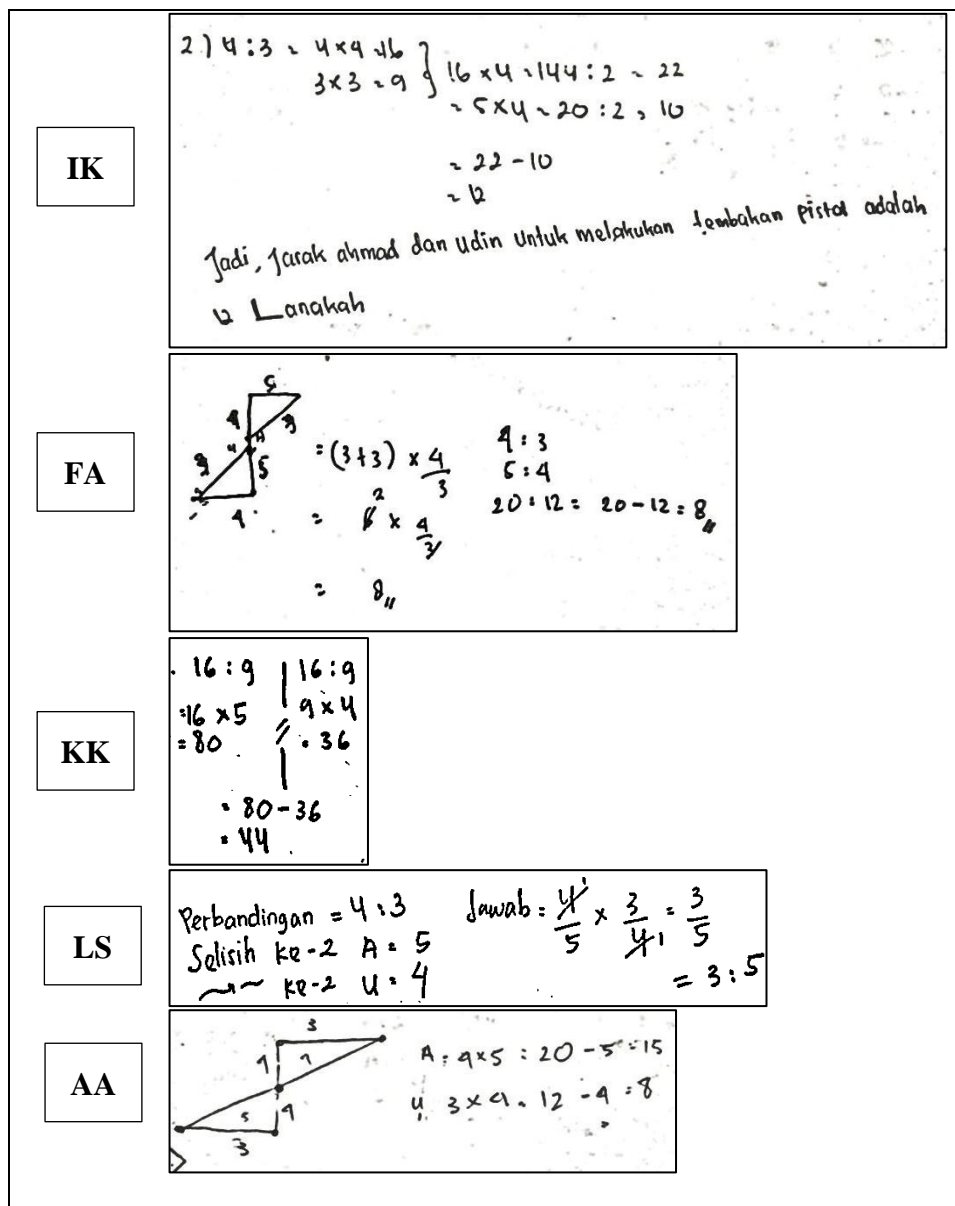 IK
2) 4 : 3 = 4 x 4 = 16
3 x 3 = 9 } 16 x 4 = 144 : 2 = 22
= 5 x 4 = 20 : 2 = 10
= 22 - 10
= 12
Jadi, Jarak ahmad dan udin untuk melakukan tembakan pistol adalah
12 Lanakah
FA
5
4
A
4
5
4
= (3+3) x 4/3
= 6 2 x 4/3
= 8 //
4 : 3
5 : 4
20 : 12 = 20 - 12 = 8 //
KK
16 : 9 | 16 : 9
= 16 x 5 | 9 x 4
= 80 // = 36
= 80 - 36
= 44
LS
Perbandingan = 4 : 3
Selisih ke-2 A = 5
ke-2 U = 4
Jawab = 4/5 x 3/4 = 3/5
= 3 : 5
AA
3
4
5
4
3
A = 4 x 5 = 20 - 5 = 15
U 3 x 4 = 12 - 4 = 8